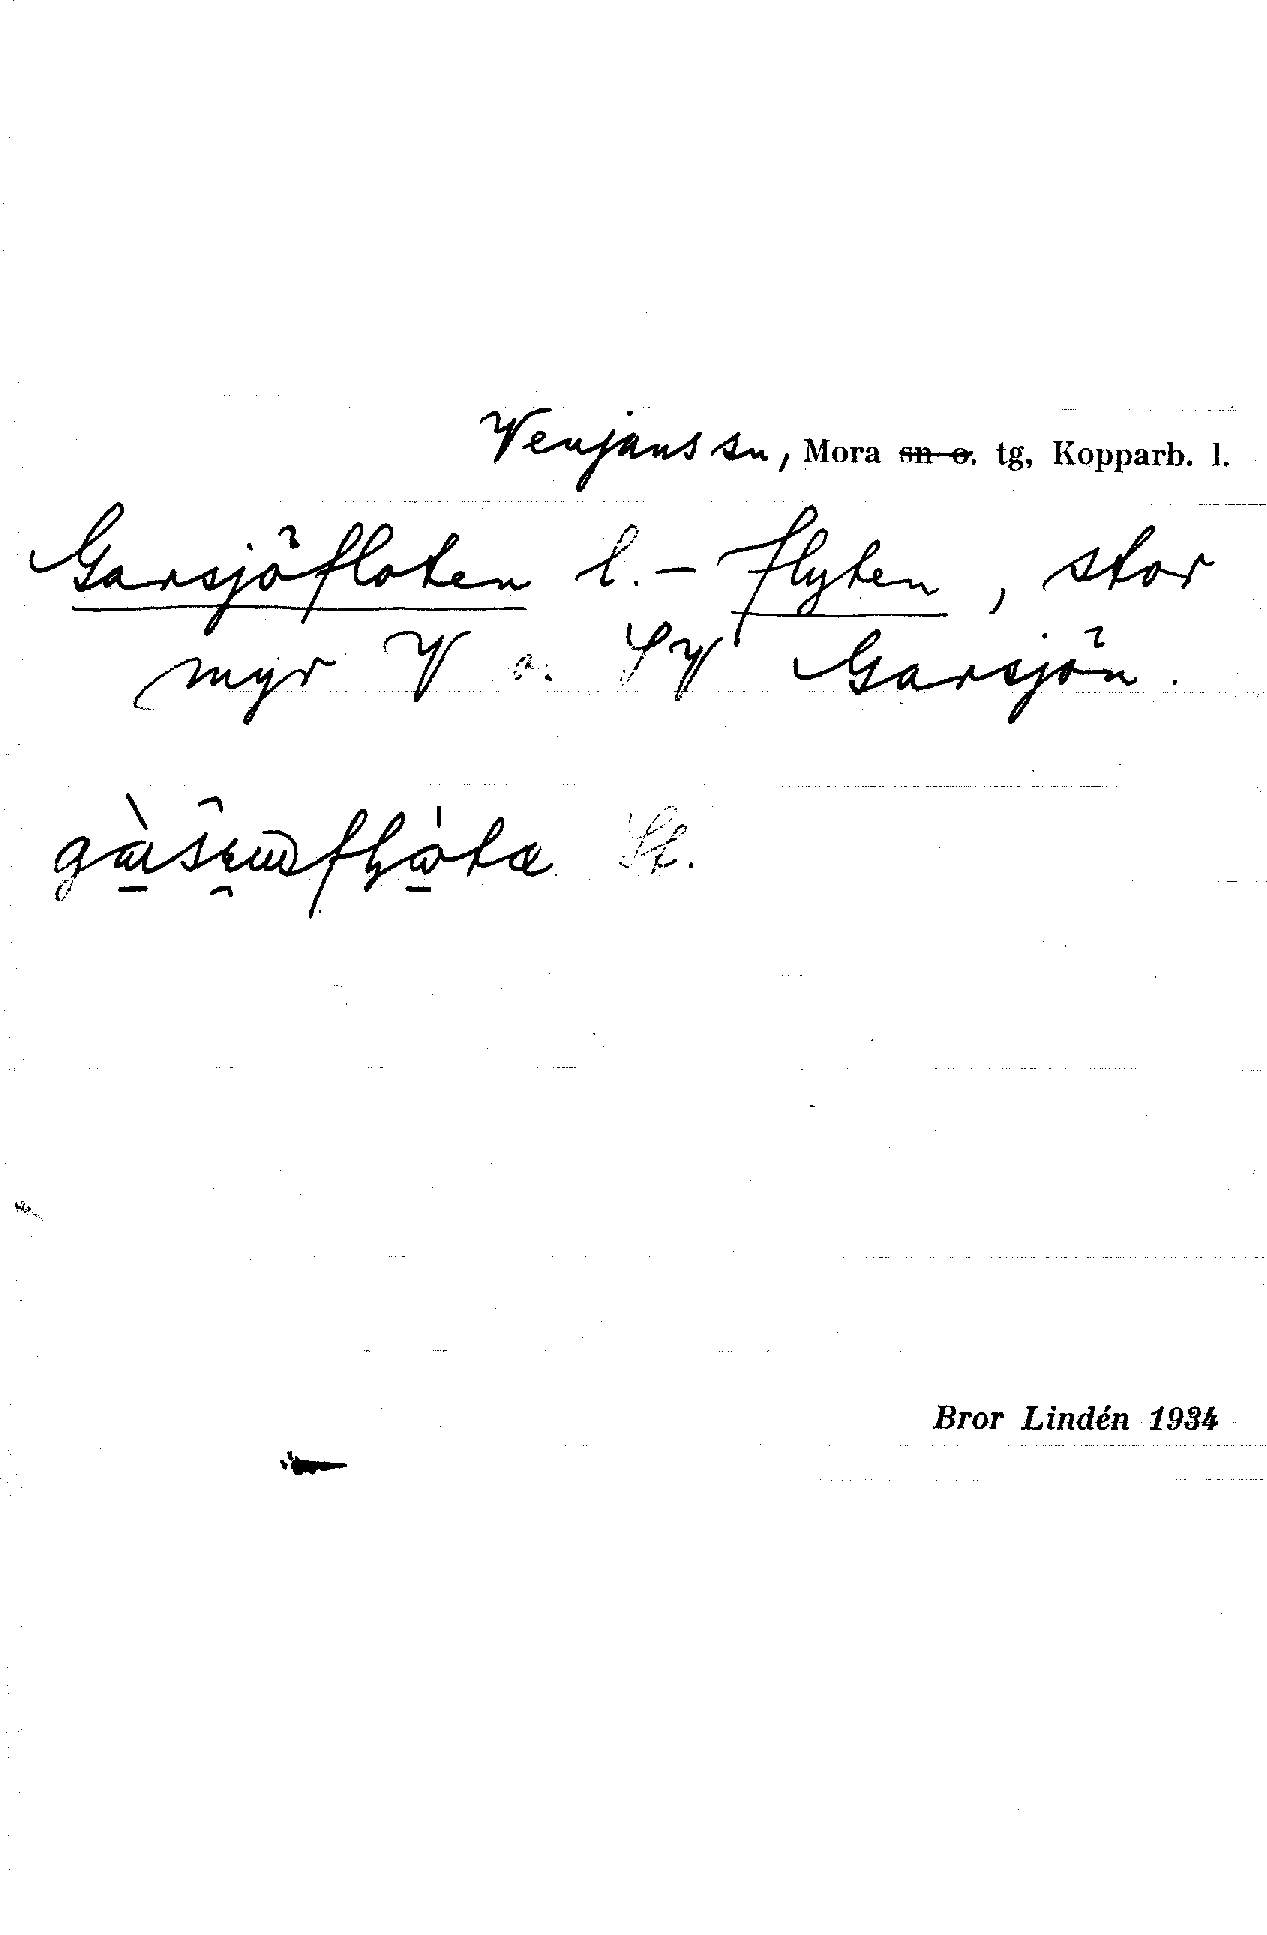 Venjans sn, Mora sn o. tg, Kopparb. l.
Garsjöfloten l. - flyten, stor
myr V o. SV Garsjön.
St.
Bror Lindén 1934